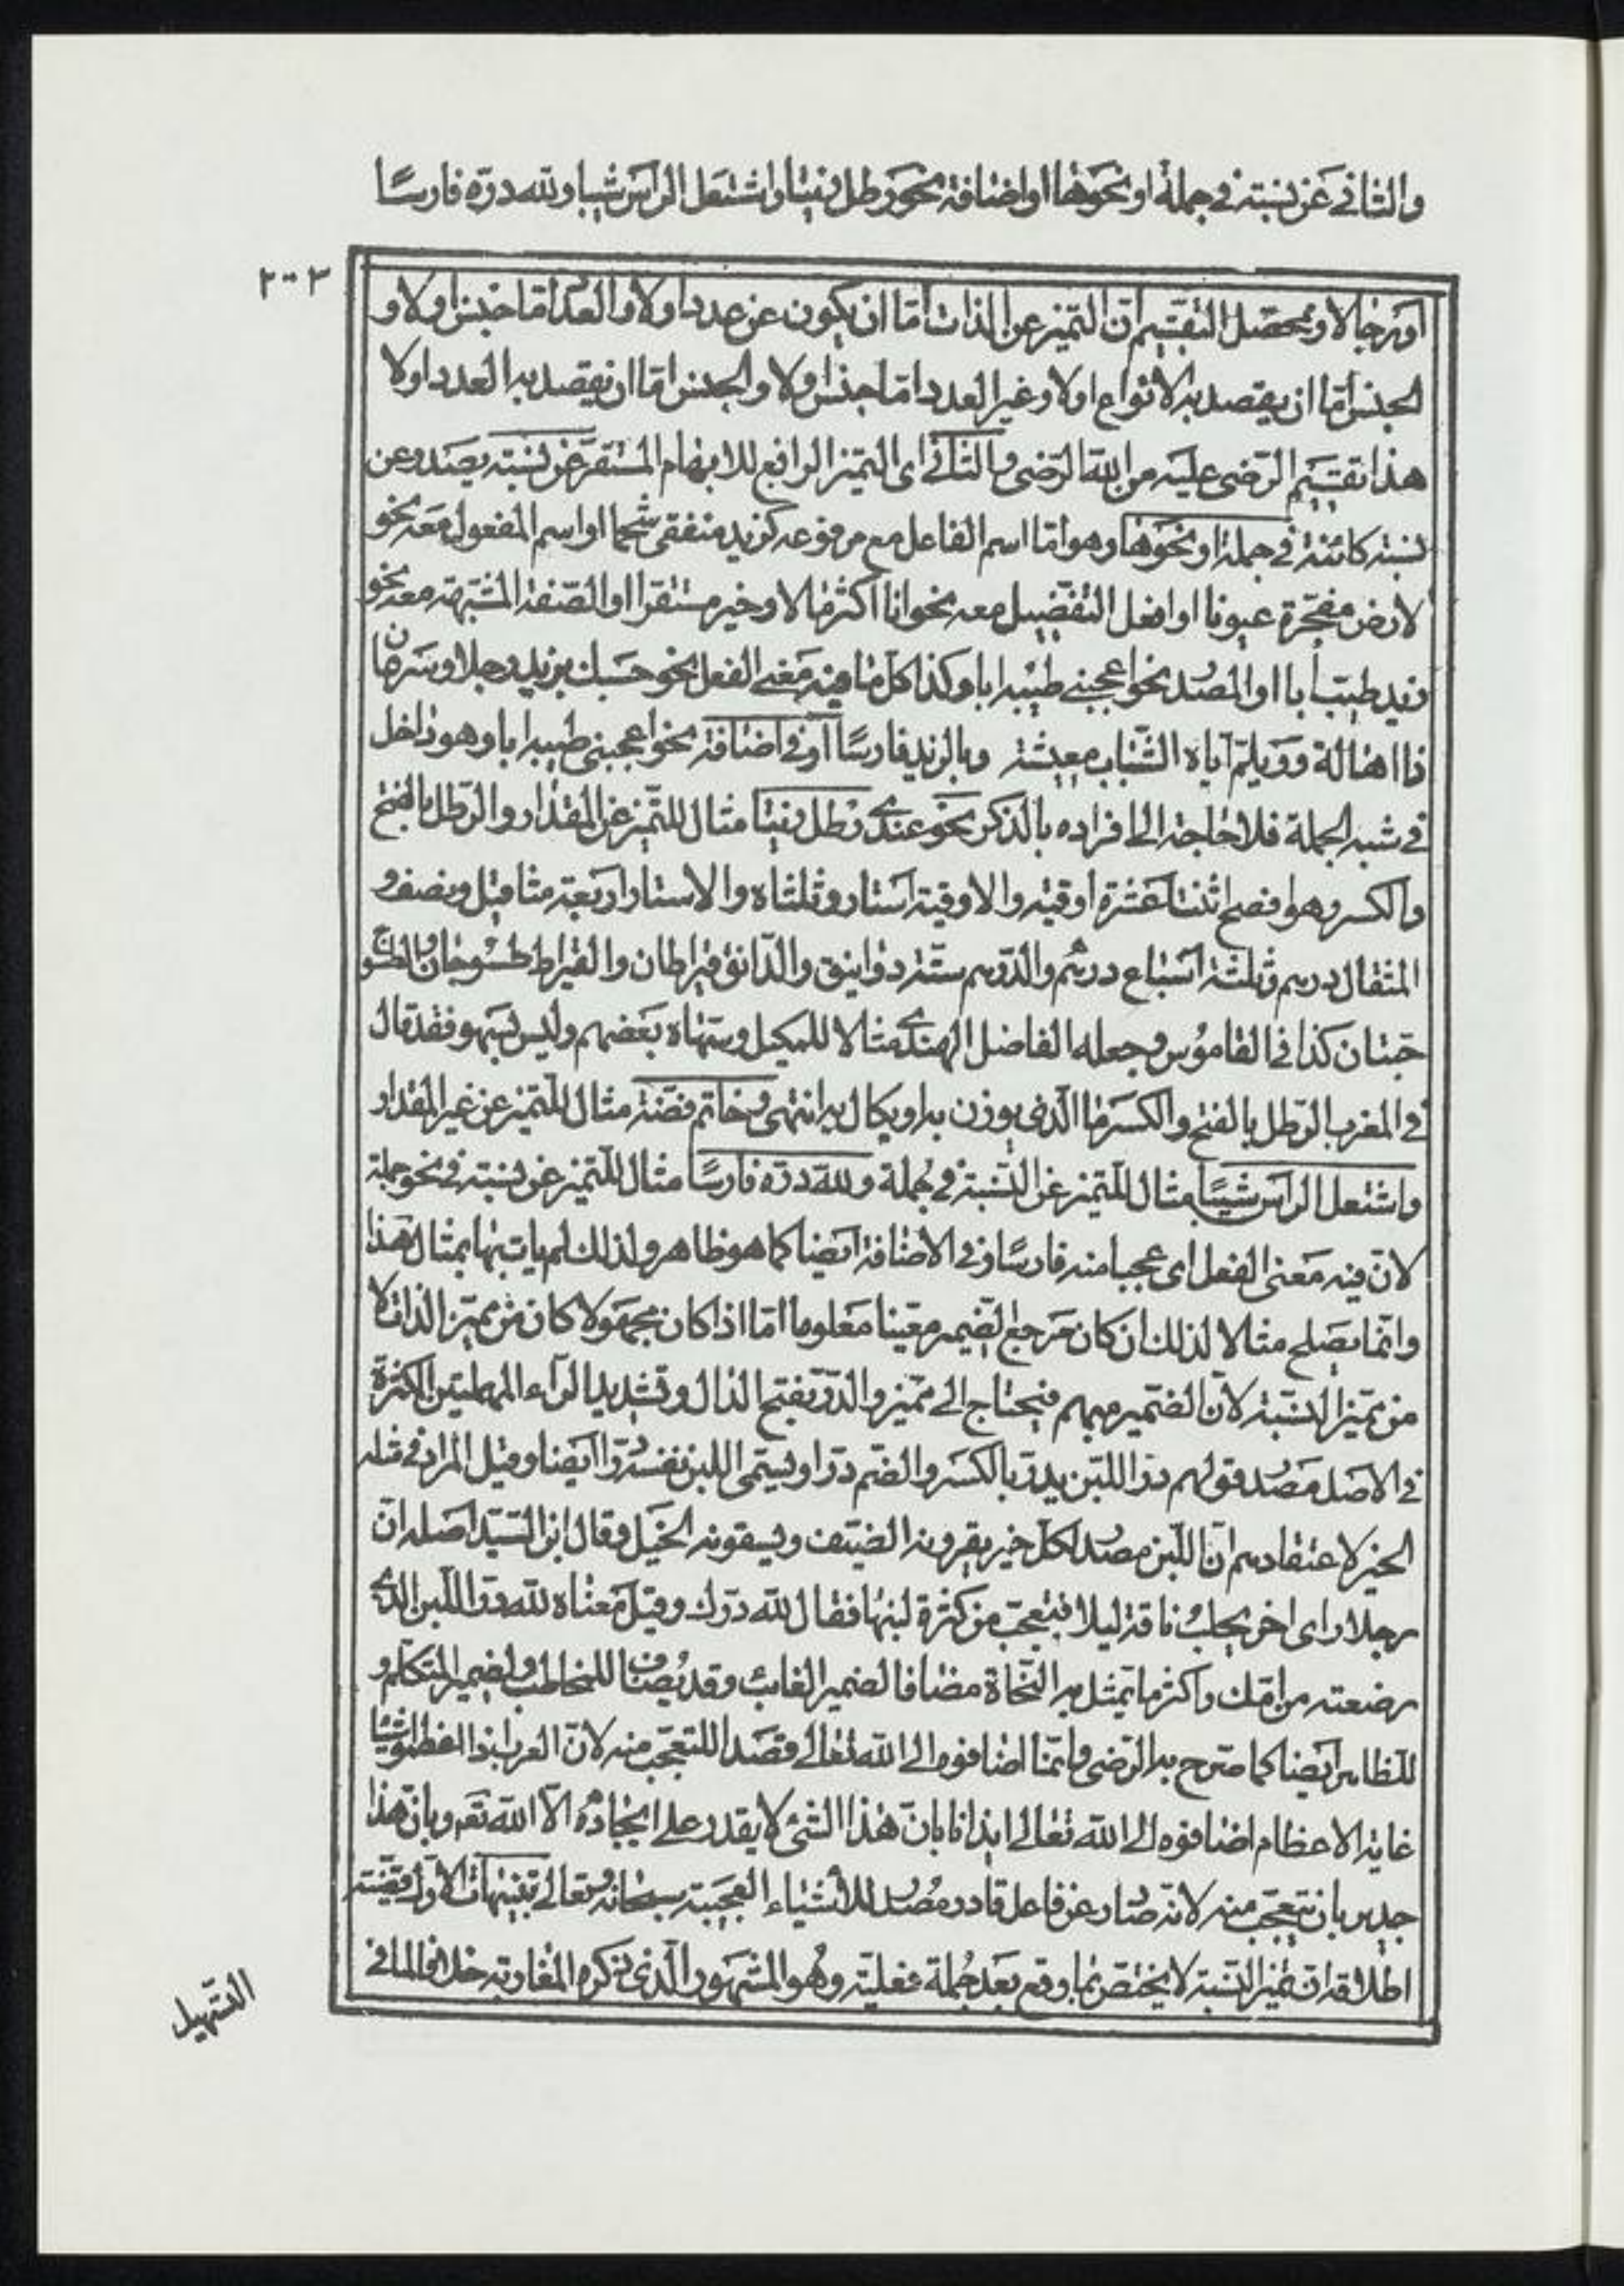 والثاني عن نسبة في جملة او نحوها او اضافة نحو رطل زيتا واشتعل الراس شيبا ولله دره فارسًا
٢٠٣
او رجالا ومحصل التقسيم ان التميز عن الذات اما ان يكون عن عدد اولا والعدد اما جنس اولا و
الجنس اما ان يقصد به الانواع اولا وغير العدد اما جنس اولا والجنس اما ان يقصد به العدد اولا
هذا تقسيم الرضى عليه من الله الرضى والثاني اى التميز الرافع للابهام المستقر عن نسبة يصدر عن
نسبة كائنة في جملة او نحوها وهو اما اسم الفاعل مع مرفوعه كزيد متفقئ شحما او اسم المفعول معه نحو
لارض مفجرة عيونا او افعل التفضيل معه نحو انا اكثر مالا وخير مستقرا او الصفة المشبهة معه نحو
زيد طيب أبا او المصدر نحو اعجبني طيبه ابا وكذا كل ما فيه معنى الفعل نحو حسبك بزيد رجلا وسرعان
ذا اهالة وويلم آياه الشباب معيشة ويا لزيد فارسًا او في اضافة نحو اعجبني طيبه ابا وهو داخل
في شبه الجملة فلا حاجة الى افراده بالذكر نحو عندي رطل زيتا مثال للتميز عن المقدار والرطل بالفتح
والكسر وهو افصح اثنتا عشرة اوقية والاوقية استار وثلثاه والاستار اربعة مثاقيل ونصف و
المثقال درهم وثلثة اسباع درهم والدرهم ستة دوانيق والدانق قيراطان والقيراط طسوجان والطسوج
حبتان كذا في القاموس وجعله الفاضل الهندي مثالا للمكيل وسهاه بعضهم وليس بسهو فقد قال
في المغرب الرطل بالفتح والكسر ما الذي يوزن به او يكال به انتهى وخاتم فضة مثال للتميز عن غير المقدار
واشتعل الراس شيبًا مثال للتميز عن النسبة في جملة ولله دره فارسًا مثال للتميز عن نسبة في نحو جملة
لان فيه معنى الفعل اى عجبا منه فارسًا وفي الاضافة ايضا كما هو ظاهر ولذلك لم يات بها بمثال هذا
وانما يصلح مثالا لذلك ان كان مرجع الضمير معينا معلوما اما اذا كان مجهولا كان من تميز الذات لا
من تميز النسبة لان الضمير مبهم فيحتاج الى مميز والدر بفتح الدال وتشديد الراء المهملتين الكثرة
في الاصل مصدر قولهم در اللبن يدر بالكسر والضم درا ويسمى اللبن نفسه درا ايضا وقيل المراد في مثله
الخير لاعتقادهم ان اللبن مصدر لكل خير يقرون به الضيف ويسقونه الخيل وقال ابن السيد اصله ان
رجلا راى اخر يحلب ناقة ليلا فتعجب من كثرة لبنها فقال لله درك وقيل معناه لله در اللبن الذي
رضعته من امك واكثر ما يمثل به النحاة مضافا لضمير الغائب وقد يضاف للمخاطب ولضمير المتكلم و
للظاهر ايضا كما صرح به الرضى وانما اضافوه الى الله تعالى قصدا للتعجب منه لان العرب اذا اعظموا شيئا
غاية الاعظام اضافوه الى الله تعالى ايذانا بان هذا الشئ لا يقدر على ايجاده الا الله تعم وبان هذا
جدير بان يتعجب منه لانه صادر عن فاعل قادر مصدر للاشياء العجيبة سبحانه وتعالى تنبيهات الاول قضية
اطلاقه ان تميز النسبة لا يختص بما وقع بعد جملة فعلية وهو المشهور الذي ذكره المغاربة خلافا لما في
التسهيل